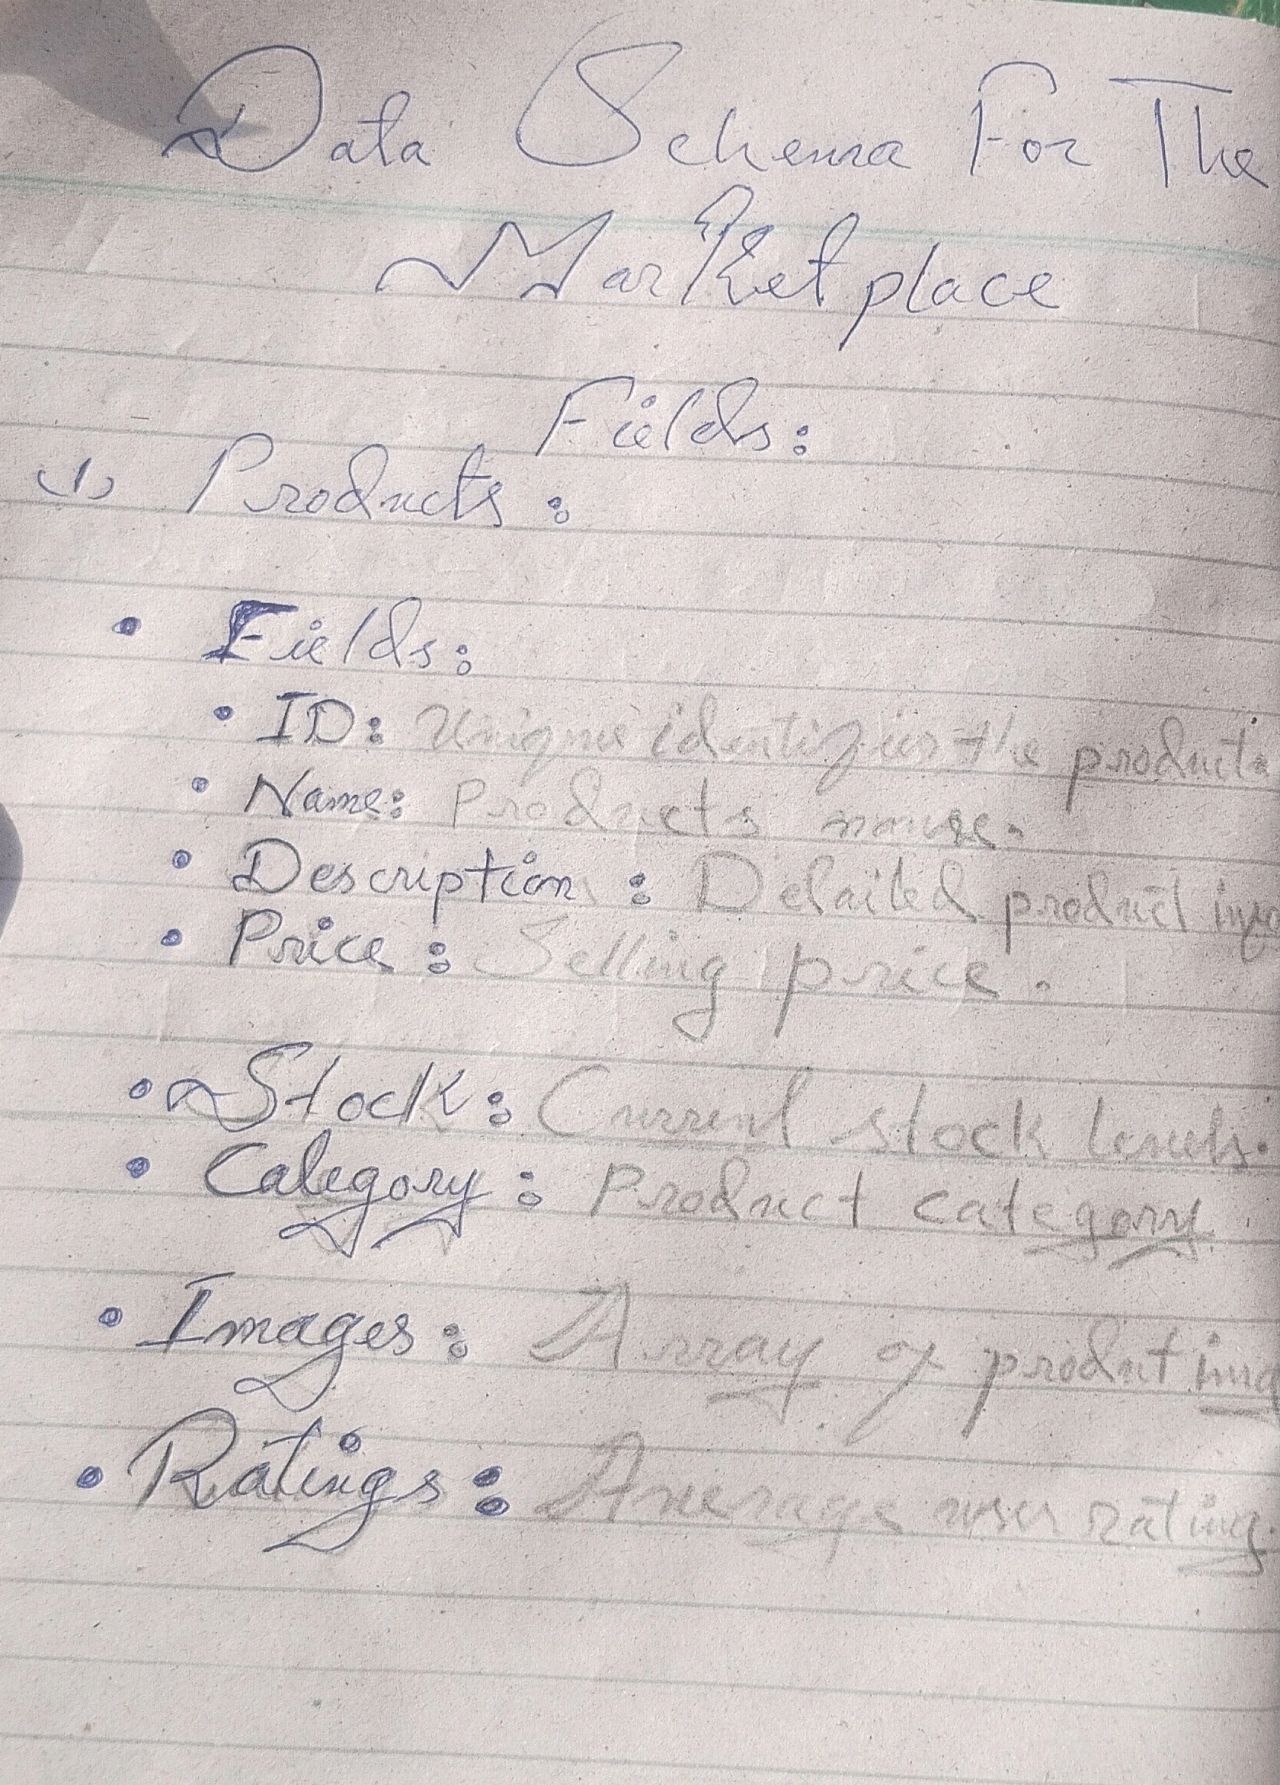 Data Schema For The
Marketplace
Fields:
(1) Products:
• Fields:
• ID: Unique identifier the product.
• Name: Products name.
• Description: Detailed product info
• Price: Selling price.
• Stock: Current stock levels.
• Category: Product category.
• Images: Array of product img
• Ratings: Average user rating.